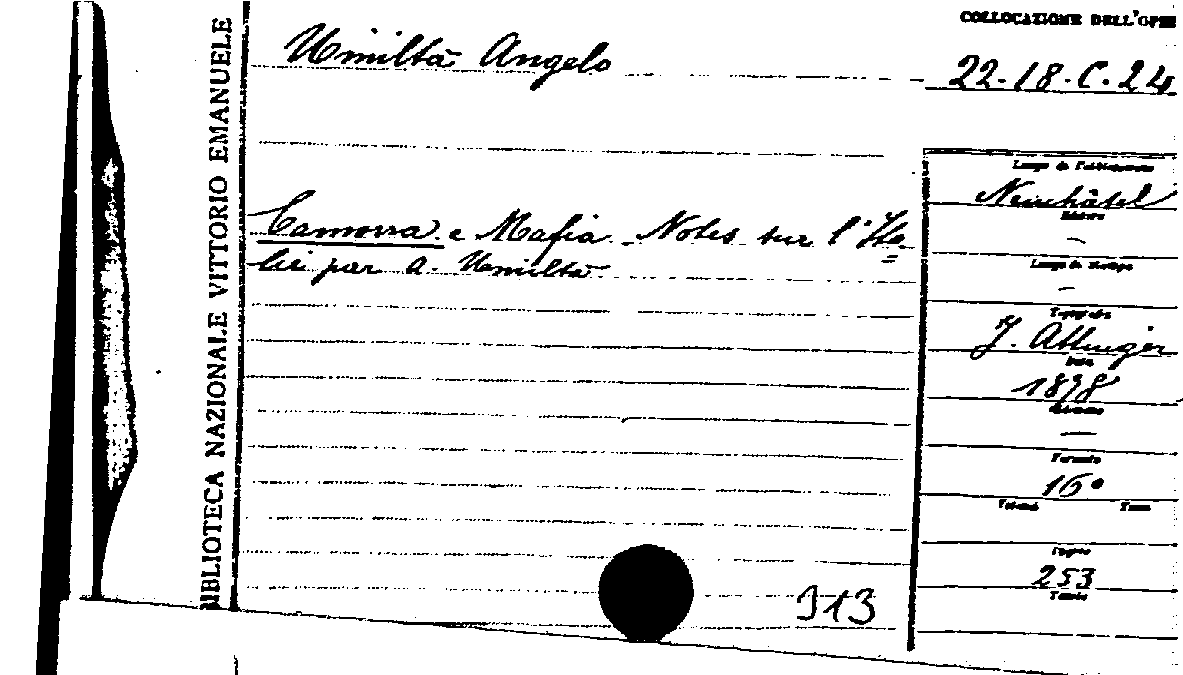 BIBLIOTECA NAZIONALE VITTORIO EMANUELE
Umiltà Angelo
Camorra e Mafia. Notes sur l'Ita=
lie par A. Umiltà
313
COLLOCAZIONE DELL'OPE
22-18-C.24
Luogo di Pubblicazione
Neuchâtel
Editore
—
Luogo di Stampa
—
Tipografo
J. Attinger
Data
1878
—
Formato
16°
Volumi Tomo
Pagine
253
Tavole